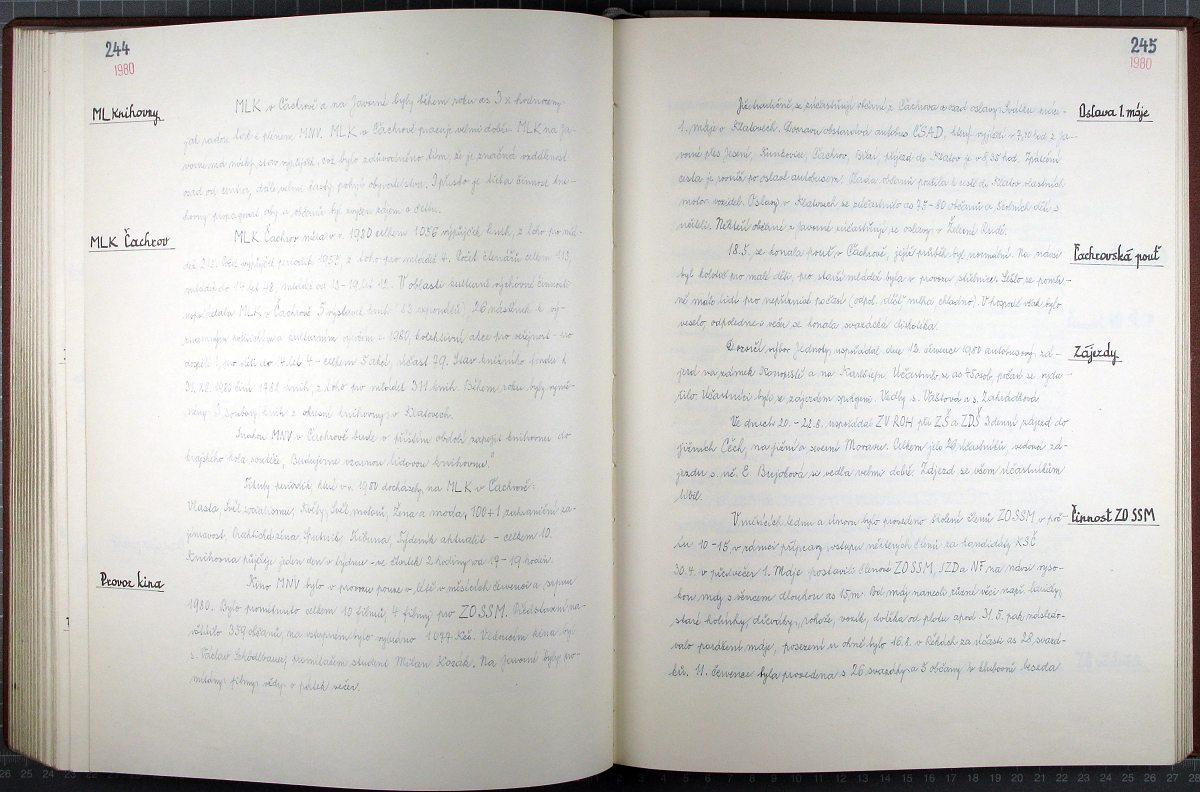 244
1980
ML knihovny
MLK v Čachrově a na Javorné byly během roku as 3 x hodnoceny
jak radou tak i plenem MNV. MLK v Čachrově pracuje velmi dobře. MLK na Ja-
vorné má nízký stav výpůjček, což bylo zdůvodněno tím, že je značná vzdálenost
osad od centra, dále velmi častý pohyb obyvatelstva. I přesto je třeba činnost kni-
hovny propagovat aby u občanů byl zvýšen zájem o četbu.
MLK Čachrov
MLK Čachrov měla v r. 1980 celkem 1056 výpůjček knih, z toho pro mlá-
dež 212. Počet výpůjček periodik 1952, z toho pro mládež 4. Počet čtenářů celkem 113,
mládež do 14 let 48, mládež od 15-19 let 12. V oblasti kulturně výchovné činnosti
uspořádala MLK v Čachrově 5 výstavek knih (83 exponátů), 26 nástěnek k vý-
znamným politickým a kulturním výročím r. 1980, kolektivní akce pro veřejnost - pro
dospělé 1, pro děti do 14 let 4 - celkem 5 akcí, účast 79. Stav knižního fondu k
31.12. 1980 činil 1781 knih, z toho pro mládež 311 knih. Během roku byly vymě-
něny 3 soubory knih z okresní knihovny v Klatovech.
Snahou MNV v Čachrově bude v příštím období zapojit knihovnu do
krajského kola soutěže „Budujeme vzornou lidovou knihovnu."
Tituly periodik, které v r. 1980 docházely na MLK v Čachrově:
Vlasta, Svět socialismu, Květy, Svět motorů, Žena a móda, 100+1 zahraniční za-
jímavost, Praktická žena, Sputnik, Tribuna, Týdeník aktualit - celkem 10.
Knihovna půjčuje jeden den v týdnu - ve čtvrtek 2 hodiny od 17 - 19 hodin.
Provoz kina
Kino MNV bylo v provozu pouze v létě v měsících červenci a srpnu
1980. Bylo promítnuto celkem 10 filmů, 4 filmy pro ZO SSM. Představení na-
vštívilo 359 občanů, na vstupném bylo vybráno 1 077 Kčs. Vedoucím kina byl
s. Václav Schödlbauer, promítačem student Milan Kozák. Na Javorné byly pro-
mítány filmy vždy v pátek večer.
245
1980
Oslava 1. máje
Již tradičně se zúčastňují občané z Čachrova a osad oslavy Svátku práce -
1. máje v Klatovech. Dopravu obstarával autobus ČSAD, který vyjížděl v 7,40 hod. z Ja-
vorné přes Jesení, Kunkovice, Čachrov, Bížší, příjezd do Klatov je v 8,35 hod. Zpáteční
cesta je rovněž po oslavě autobusem. Řada občanů použila k cestě do Klatov vlastních
motor. vozidel. Oslavy v Klatovech se zúčastnilo as 75-80 občanů a školních dětí s
učiteli. Někteří občané z Javorné zúčastňují se oslavy v Železné Rudě.
Čachrovská pouť
18.5. se konala pouť v Čachrově, jejíž průběh byl normální. Na návsi
byl kolotoč pro malé děti, pro starší mládež byla v provozu střelnice. Sešlo se poměr-
ně málo lidí pro nepříznivé počasí (odpol. déšť, mlha, chladno). V hospodě však bylo
veselo, odpoledne a večer se konala svazácká diskotéka.
Zájezdy
Dozorčí výbor Jednoty uspořádal dne 12. července 1980 autobusový zá-
jezd na zámek Konopiště a na Karlštejn. Účastnilo se as 45 osob, počasí se vyda-
řilo. Účastníci byli se zájezdem spokojeni. Vedly s. Vaštová a s. Zahrádková.
Ve dnech 20. - 22.8. uspořádal ZV ROH při ZŠ a ZDŠ 3 denní zájezd do
jižních Čech, na jižní a severní Moravu. Celkem jelo 26 účastníků, vedoucí zá-
jezdu s. uč. E. Brejchová se vedla velmi dobře. Zájezd se všem účastníkům
líbil.
Činnost ZO SSM
V měsících lednu a únoru bylo provedeno školení členů ZO SSM v poč-
tu 10-15 v rámci přípravy vstupu některých členů za kandidáty KSČ.
30.4. v předvečer 1. Máje postavili členové ZO SSM, JZD a NF na návsi vyso-
kou máj s věncem dlouhou as 15 m. Pod máj nanosili různé věci např. lavičky,
staré holínky, dřeváky, rohože, vozík, dvířka od plotu apod. 31.5. pak následo-
valo porážení máje, posezení u ohně bylo 16.8. v Říhách za účasti as 28 svazá-
ků. 11. července byla provedena s 26 svazáky a 5 občany v klubovni beseda